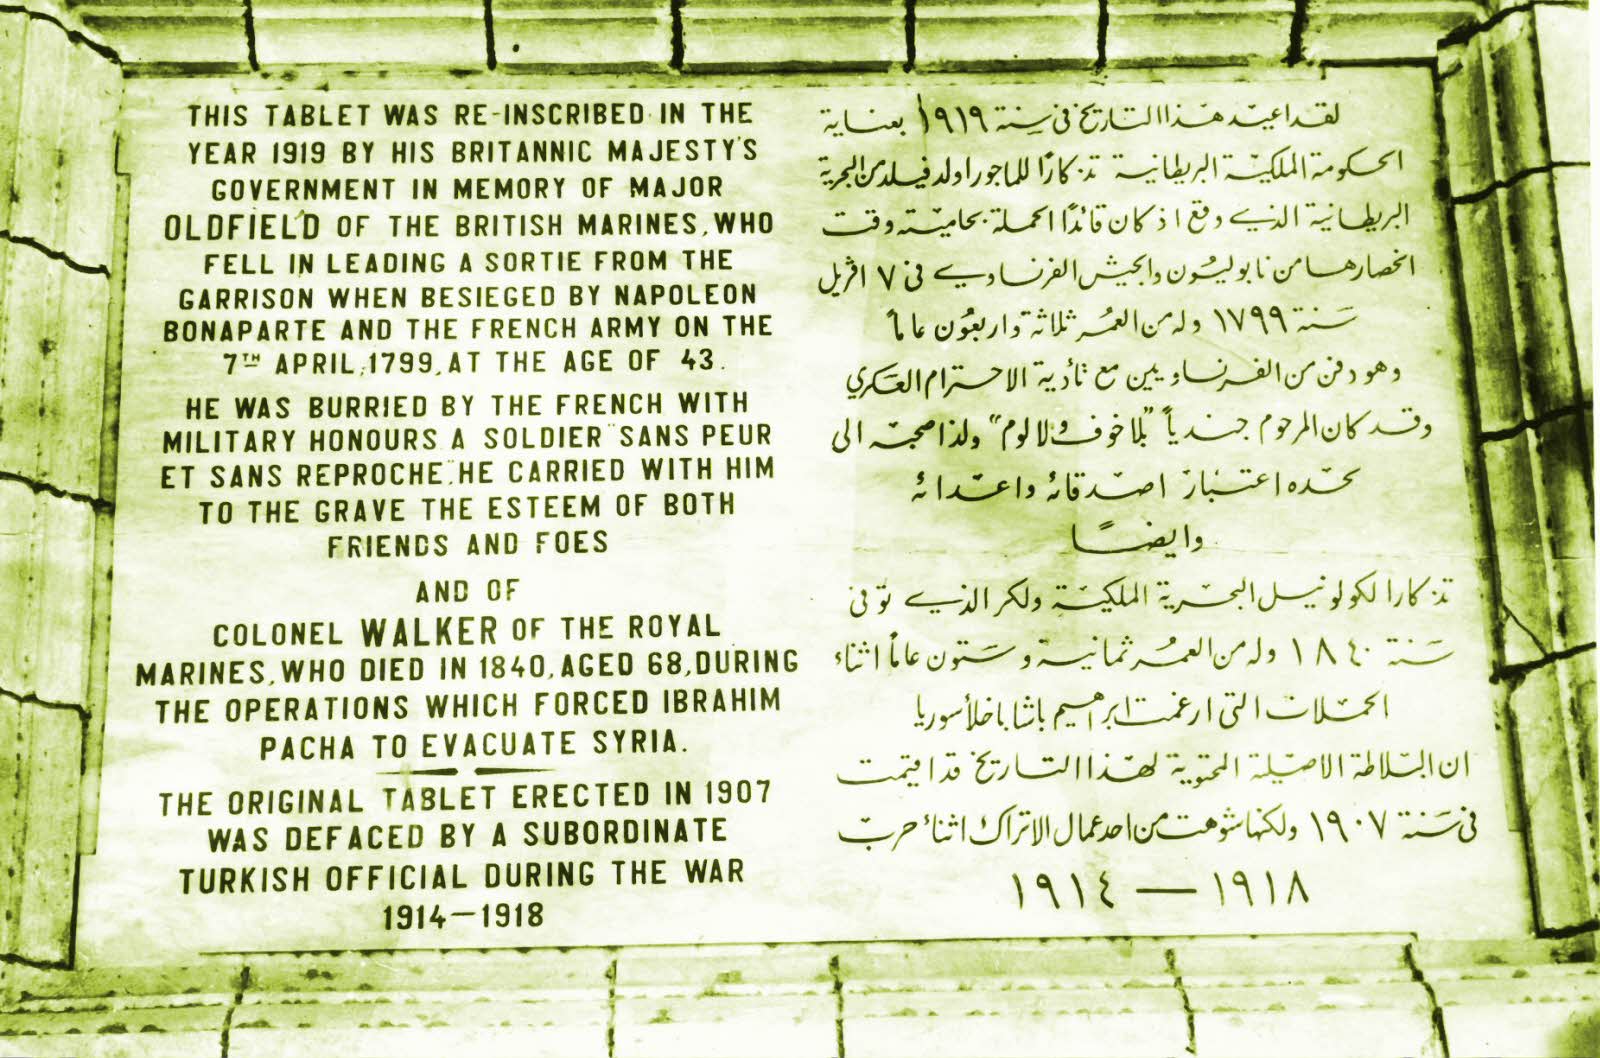 THIS TABLET WAS RE-INSCRIBED IN THE
YEAR 1919 BY HIS BRITANNIC MAJESTY'S
GOVERNMENT IN MEMORY OF MAJOR
OLDFIELD OF THE BRITISH MARINES, WHO
FELL IN LEADING A SORTIE FROM THE
GARRISON WHEN BESIEGED BY NAPOLEON
BONAPARTE AND THE FRENCH ARMY ON THE
7TH APRIL, 1799, AT THE AGE OF 43.
HE WAS BURRIED BY THE FRENCH WITH
MILITARY HONOURS A SOLDIER "SANS PEUR
ET SANS REPROCHE". HE CARRIED WITH HIM
TO THE GRAVE THE ESTEEM OF BOTH
FRIENDS AND FOES
AND OF
COLONEL WALKER OF THE ROYAL
MARINES, WHO DIED IN 1840, AGED 68, DURING
THE OPERATIONS WHICH FORCED IBRAHIM
PACHA TO EVACUATE SYRIA.
THE ORIGINAL TABLET ERECTED IN 1907
WAS DEFACED BY A SUBORDINATE
TURKISH OFFICIAL DURING THE WAR
1914—1918
لقد اعيد هذا التاريخ في سنة ١٩١٩ بعناية
الحكومة الملكيّة البريطانية تذكارًا للماجور اولدفيلد من البحرية
البريطانية الذي وقع اذ كان قائدًا الحملة بحاميّته وقت
انحصارها من نابوليون والجيش الفرنساوي في ٧ افريل
سَنة ١٧٩٩ وله من العمُر ثلاثة واربعُون عاماً
وهو دفن من الفرنساويين مع تأدية الاحترام العسكري
وقد كان المرحوم جندياً "بلا خوف ولا لوم" ولذا صحبته الى
لحده اعتبار اصدقائه واعدائه
وايضًا
تذكارا لكولونيل البحرية الملكيّة ولكر الذي توّفى
سَنة ١٨٤٠ وله من العمُر ثمانية وسَتون عاماً اثناء
الحمَلات التى ارغمت ابراهيم باشا باخلأ سوريا
ان البَلاطة الاصليّة المحتوية لهذا التاريخ قد اقيمت
في سَنة ١٩٠٧ ولكنها شوّهت من احد عمال الاتراك اثناء حرب
١٩١٤ — ١٩١٨